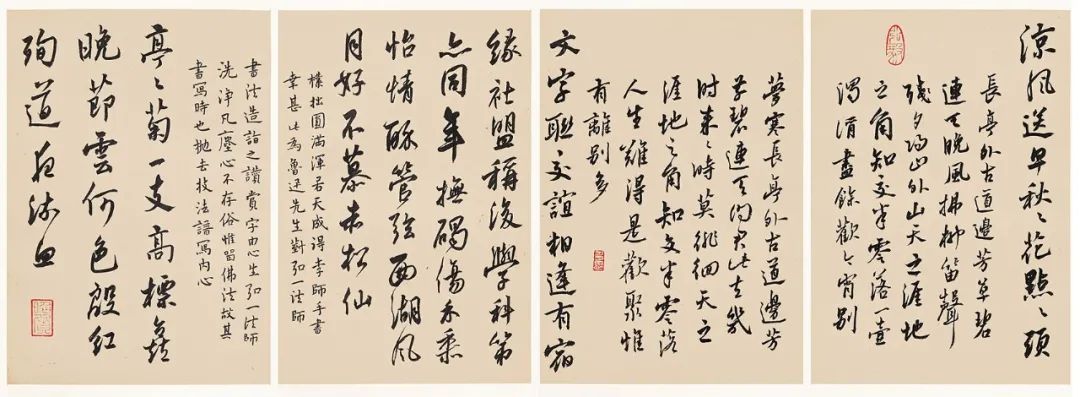 涼風送早秋〻花點〻頭
長亭外古道邊芳草碧
連天晚風拂柳笛聲
殘夕陽山外山天之涯地
之角知交半零落一壺
濁酒盡餘歡今宵別
夢寒長亭外古道邊芳
草碧連天问君此去幾
时来〻時莫徘徊天之
涯地之角知交半零落
人生難得是歡聚惟
有離別多
文字聯交誼相逢有宿
緣社盟稱後學科第
亦同年撫碣傷禾黍
怡情醉管弦西湖风
月好不慕赤松仙
樸拙圓滿渾若天成得李師手書
幸甚此為魯迅先生對弘一法師
書法造詣之讚賞字由心生弘一法師
洗淨凡塵心不存俗惟留佛法故其
書寫時也拋去技法譜寫内心
亭〻菊一支高標矗
晚節雲何色殷红
殉道应流血